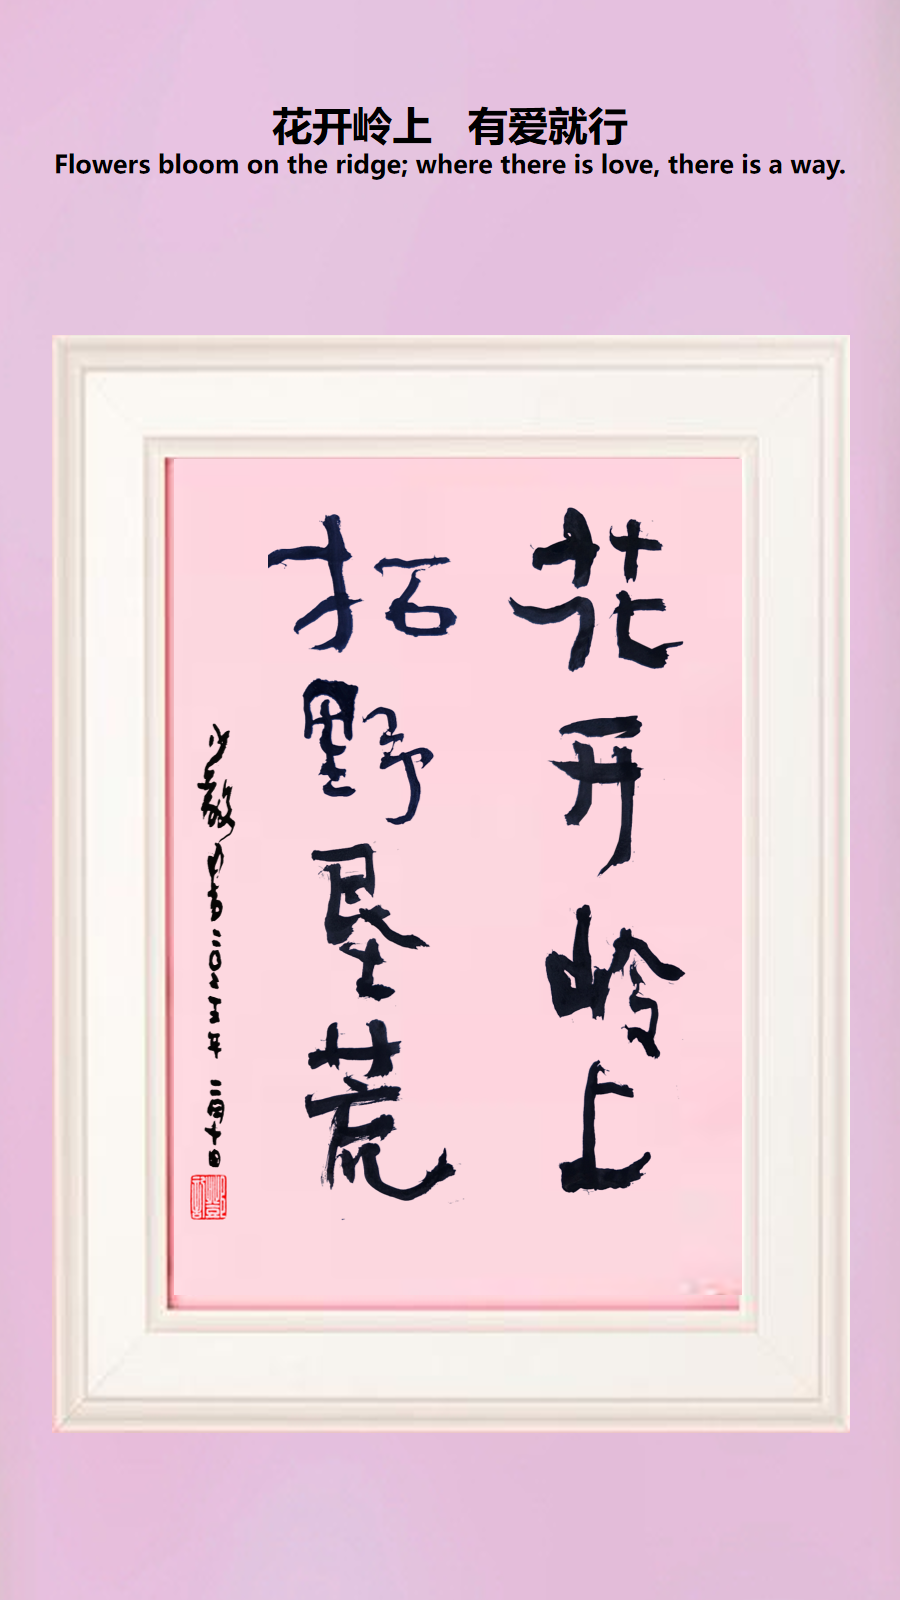 花开岭上 有爱就行
Flowers bloom on the ridge; where there is love, there is a way.
花开岭上
拓野垦荒
二〇二五年 二月十日